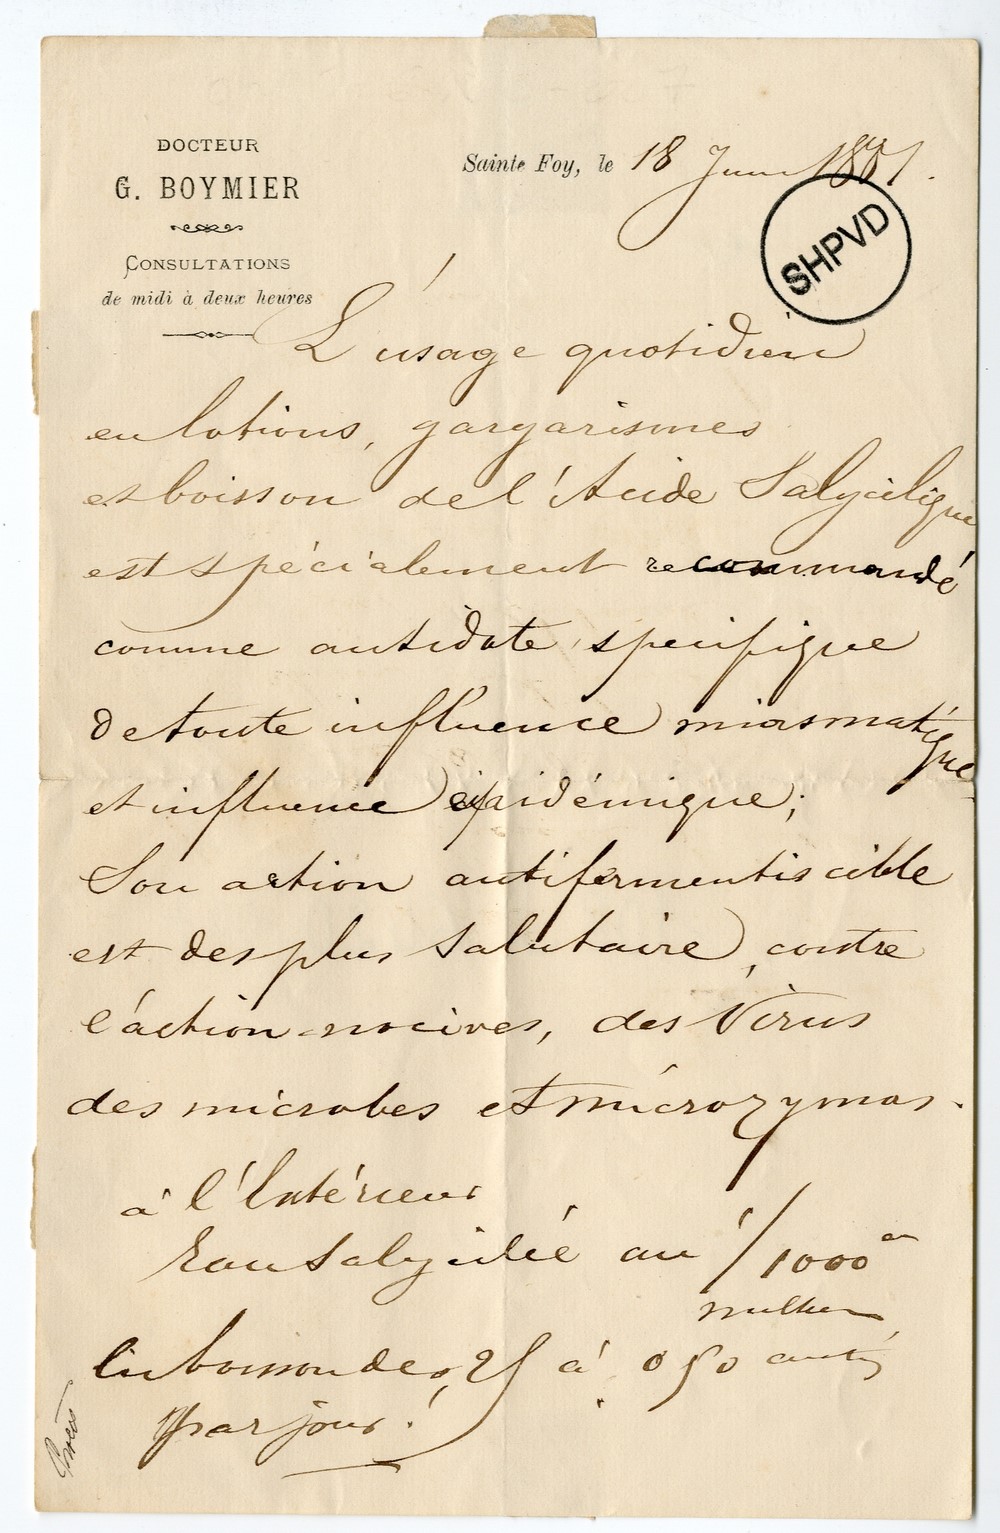 DOCTEUR
G. BOYMIER
CONSULTATIONS
de midi à deux heures
Sainte Foy, le 18 Juin
SHPVD
L'usage quotidien
en lotions, gargarismes
et boisson de l'Acide Salycilique
est spécialement recommandé
comme antidote spécifique
de toute influence miasmatique
et influence épidémique;
Son action antifermentiscible
est des plus salutaire, contre
l'action nocives, des Virus
des microbes et microzymas.
à l'Intérieur
Eau salycilée au 1/1000
en boisson de 0,25 à 0 50
par jour.